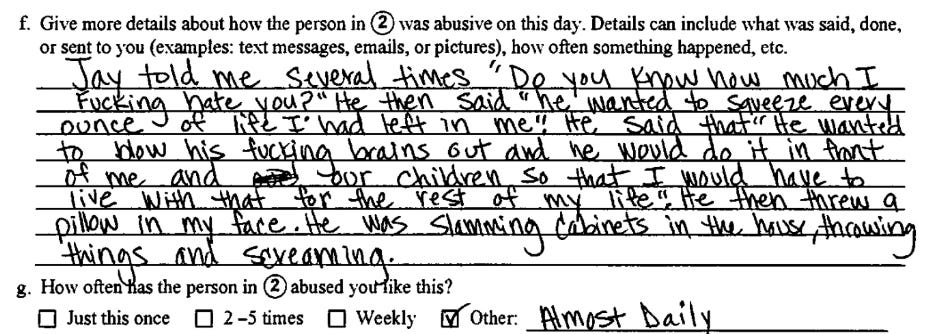 f. Give more details about how the person in ② was abusive on this day. Details can include what was said, done,
or sent to you (examples: text messages, emails, or pictures), how often something happened, etc.
Jay told me several times "Do you know how much I
Fucking hate you?" He then said "he wanted to squeeze every
ounce of life I had left in me". He said that "He wanted
to blow his fucking brains out and he would do it in front
of me and our children so that I would have to
live with that for the rest of my life". He then threw a
pillow in my face. He was slamming cabinets in the house, throwing
things and screaming.
g. How often has the person in ② abused you like this?
☐ Just this once ☐ 2–5 times ☐ Weekly ☑ Other: Almost Daily